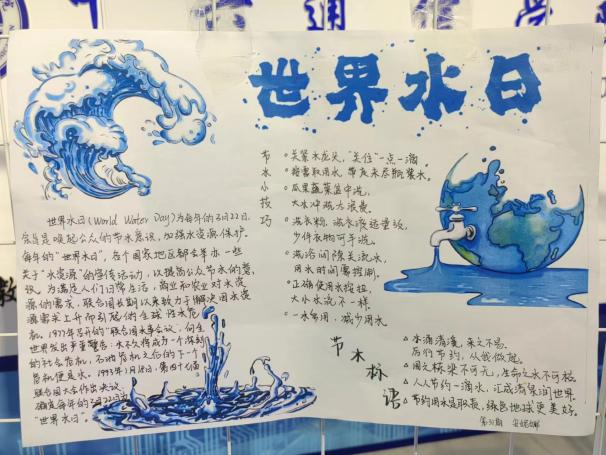 世界水日
世界水日(World Water Day)为每年的3月22日,
宗旨是唤起公众的节水意识,加强水资源保护。
每年的"世界水日",各个国家地区都会举办一些
关于"水资源"的宣传活动,以提高公众节水的意
识。为满足人们日常生活,商业和农业对水资
源的需求,联合国长期以来致力于解决因水资
源需求上升而引起的全球性水危
机。1977年召开的"联合国水事会议",向全
世界发出严重警告:水不久将成为一个深刻
的社会危机,石油危机之后的下一个
危机便是水。1993年1月18日,第四十七届
联合国大会作出决议,
确定每年的3月22日为
"世界水日"。
节水小技巧
关紧水龙头,"关住"一点一滴。
按需取用水,带走未尽瓶装水。
瓜果蔬菜盆中洗,
大水冲洗太浪费。
洗衣粉,减衣液适量放,
少件衣物可手洗。
洗浴间隙关流水,
用水时间需控制。
正确使用水按钮,
大小水流不一样。
一水多用,减少用水
节水标语
水滴清清,来之不易,
厉行节约,从我做起。
人人节约一滴水,汇成清泉润世界
节约用水是职责,绿色地球更美好。